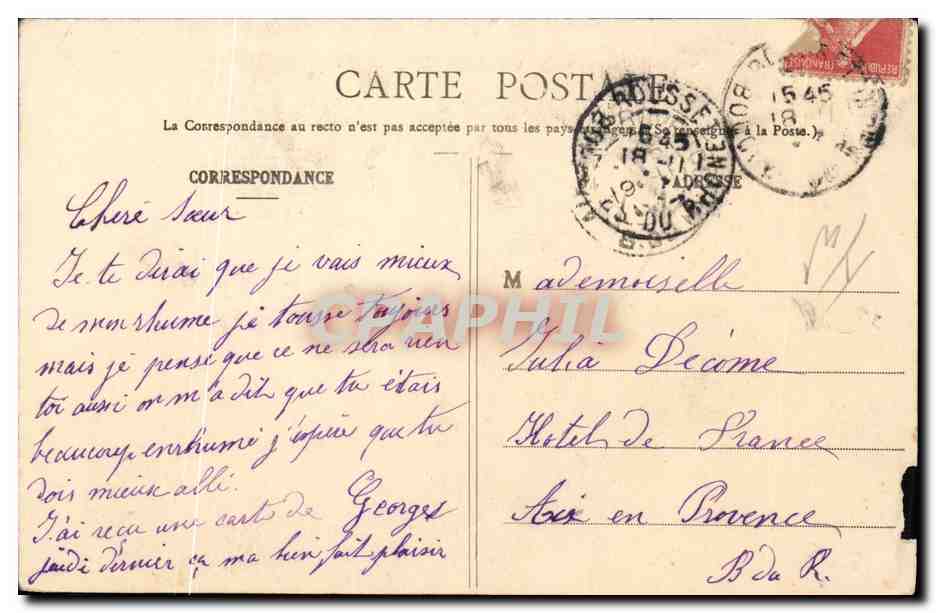 CARTE POSTALE
La Correspondance au recto n'est pas acceptée par tous les pays étrangers (Se renseigner à la Poste.)
CORRESPONDANCE
L'ADRESSE
Cheré Sœur
Je te dirai que je vais mieux
de mon rhume je tousse toujours
mais je pense que ce ne sera rien
toi aussi on m'a dit que tu étais
beaucoup enrhumé j'espère que tu
dois mieux allé.
J'ai reçu une carte de Georges
jeudi dernier ça ma bien fait plaisir
Mademoiselle
Julia Decome
Hotel de France
Aix en Provence
B du R.
CPAPHIL
15 45
18 -11
DU R
15 45
18
REPUBLIQUE FRANÇAISE